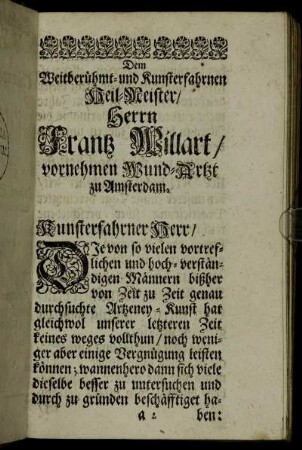 Dem
Weitberühmt- und Kunsterfahrnen
Heil-Meister/
Herrn
Frantz Willart/
vornehmen Wund-Artzt
zu Amsterdam.
Kunsterfahrner Herr/
DIe von so vielen vortref-
lichen und hoch-verstän-
digen Männern bißher
von Zeit zu Zeit genau
durchsuchte Artzeney-Kunst hat
gleichwol unserer letzteren Zeit
keines weges vollthun/ noch weni-
ger aber einige Vergnügung leisten
können; wannenhero dann sich viele
dieselbe besser zu untersuchen und
durch zu gründen beschäfftiget ha-
a 2 ben: